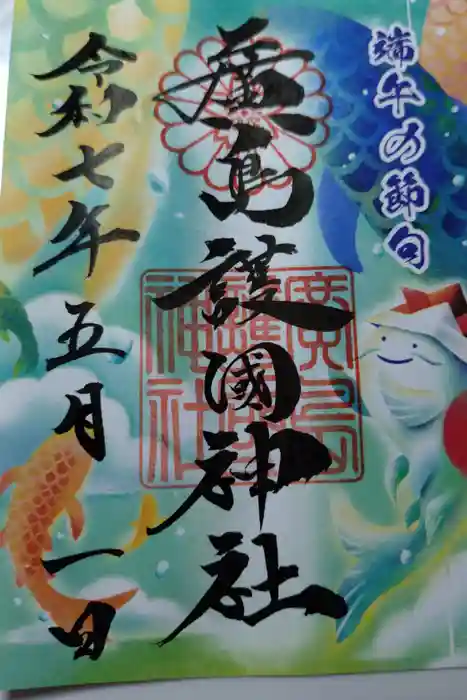 端午の節句
廣島護國神社
廣島
護國
神社
令和七年五月一日